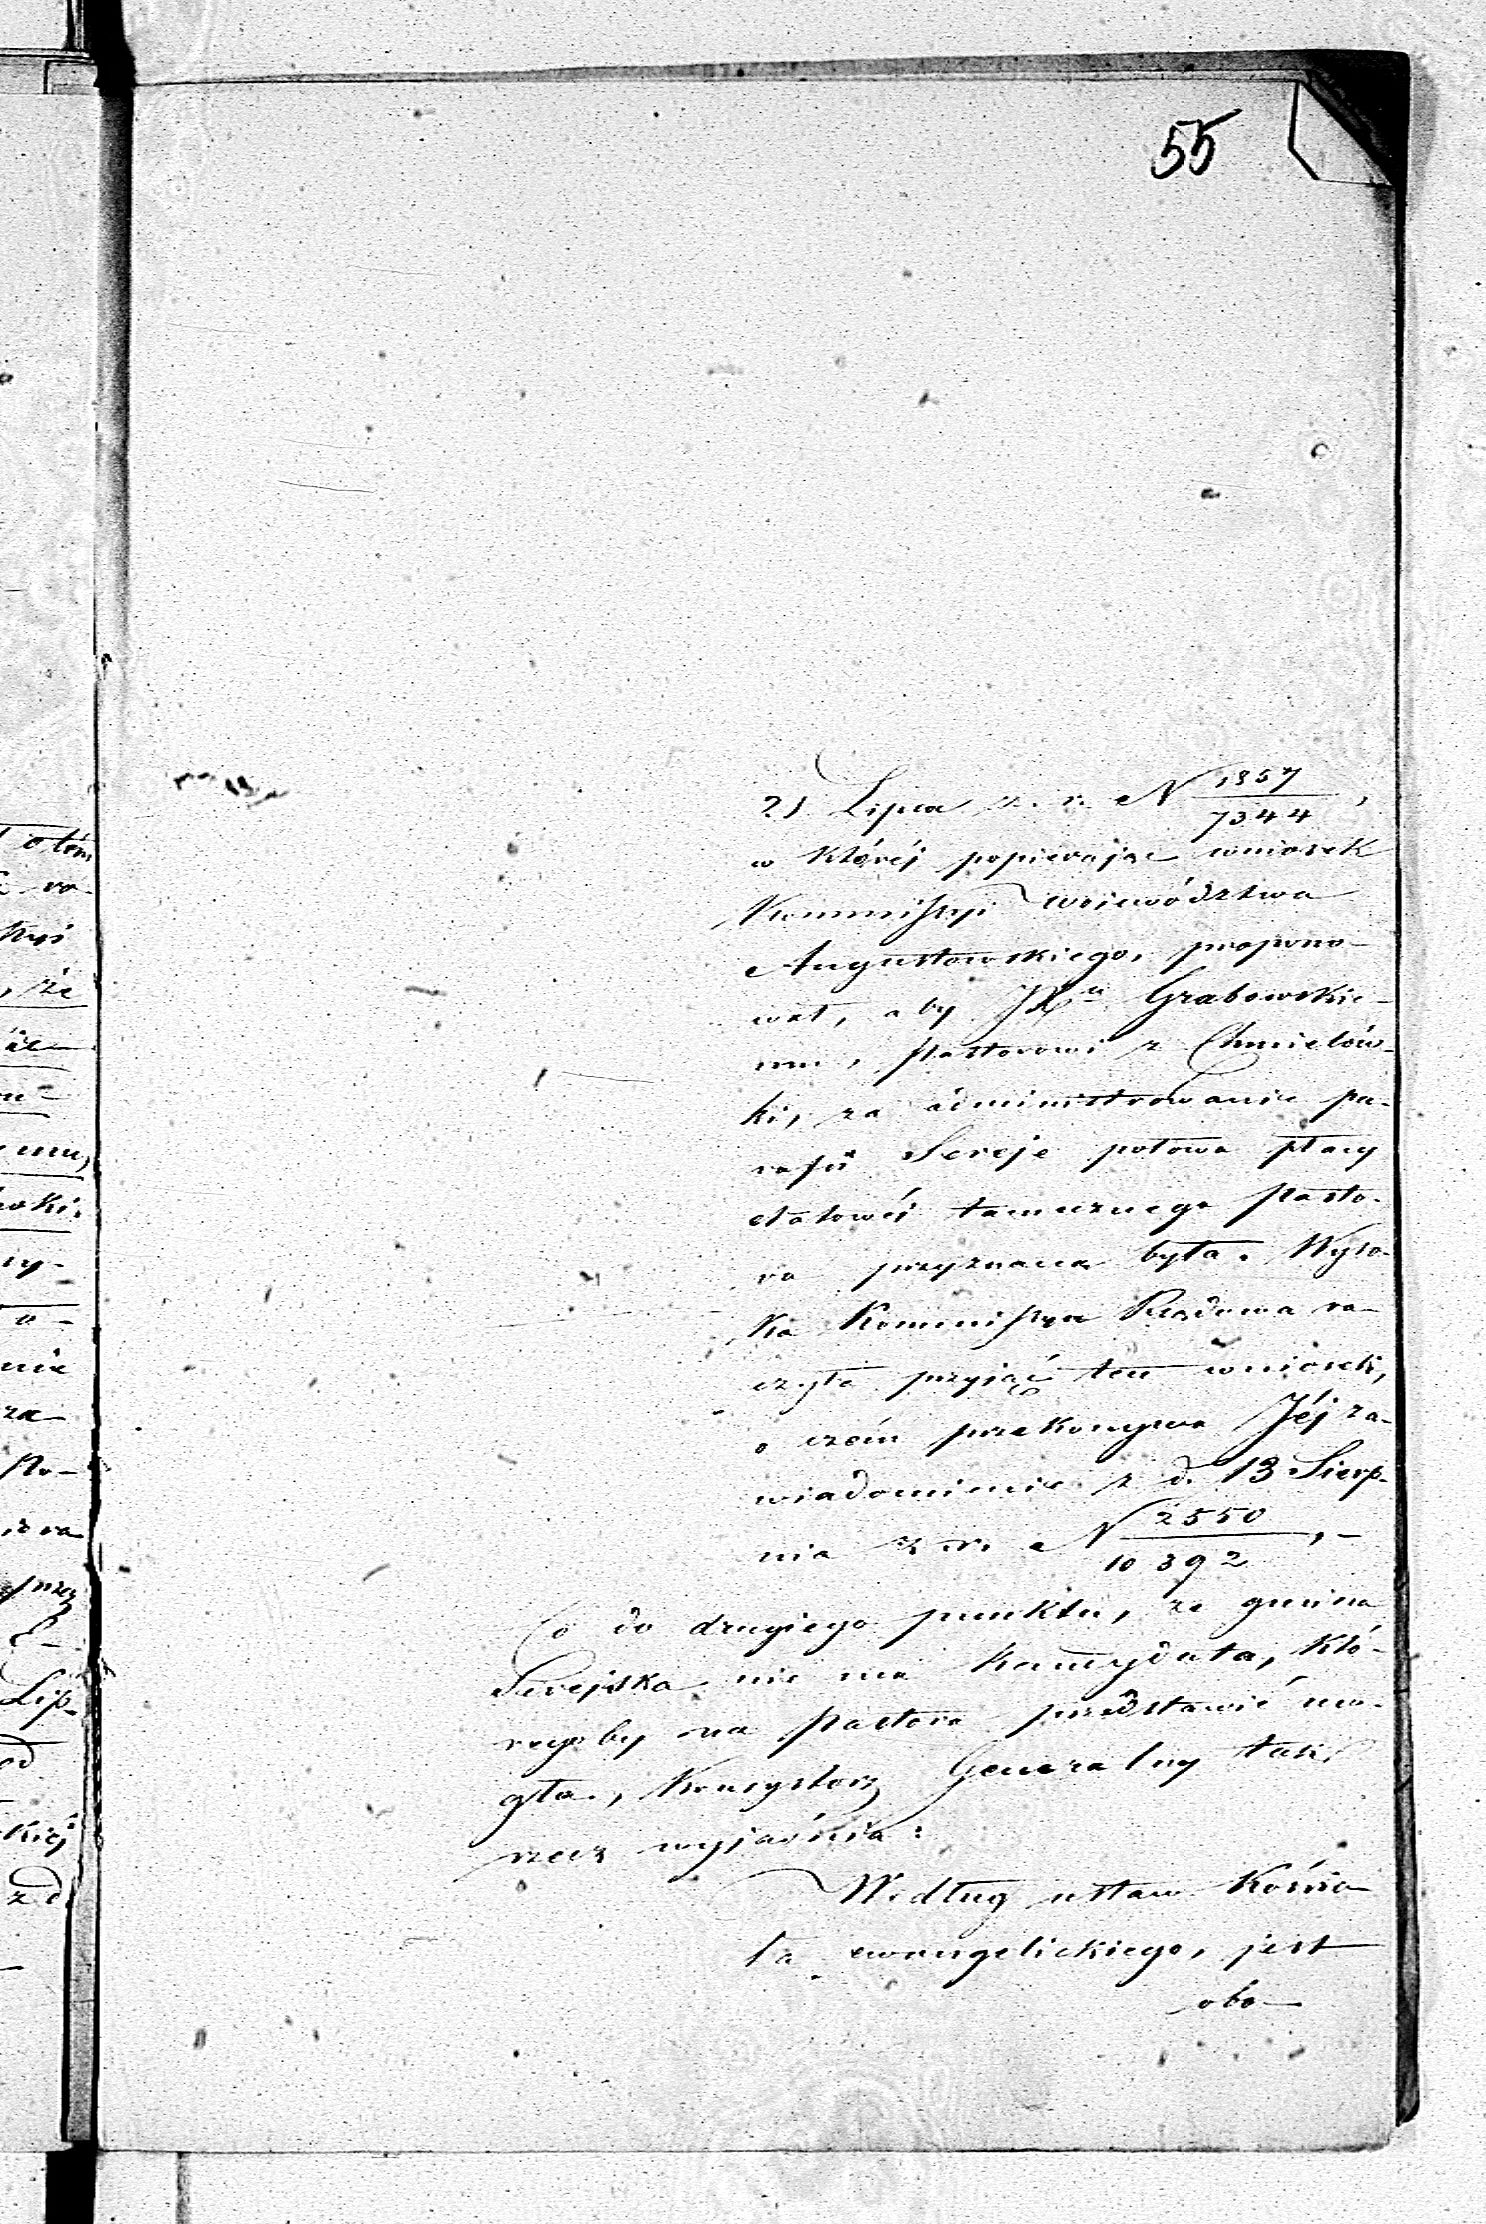 55
21 Lipca z. r. N 1357/7344,
w któréj popierając wniosek
Kommissyi Województwa
Augustowskiego, propono-
wał, aby JXu Grabowskie-
mu, Pastorowi z Chmielów-
ki, za administrowanie pa-
rafii Sereje połowa płacy
etatowéj tamecznego Pasto-
ra przyznana była. Wyso-
ka Kommissya Rządowa ra-
czyła przyjąć ten wniosek,
o czém przekonywa Jéj za-
wiadomienie z d. 13 Sierp-
nia z. r. N 2550/10392,-
Co do drugiego punktu, że gmina
Serejska nie ma kandydata, któ-
regoby na Pastora przedstawić mo-
gła, Konsystorz Generalny tak
rzecz wyjaśnia:
Według ustaw Kościo-
ła ewangelickiego, jest
obo-